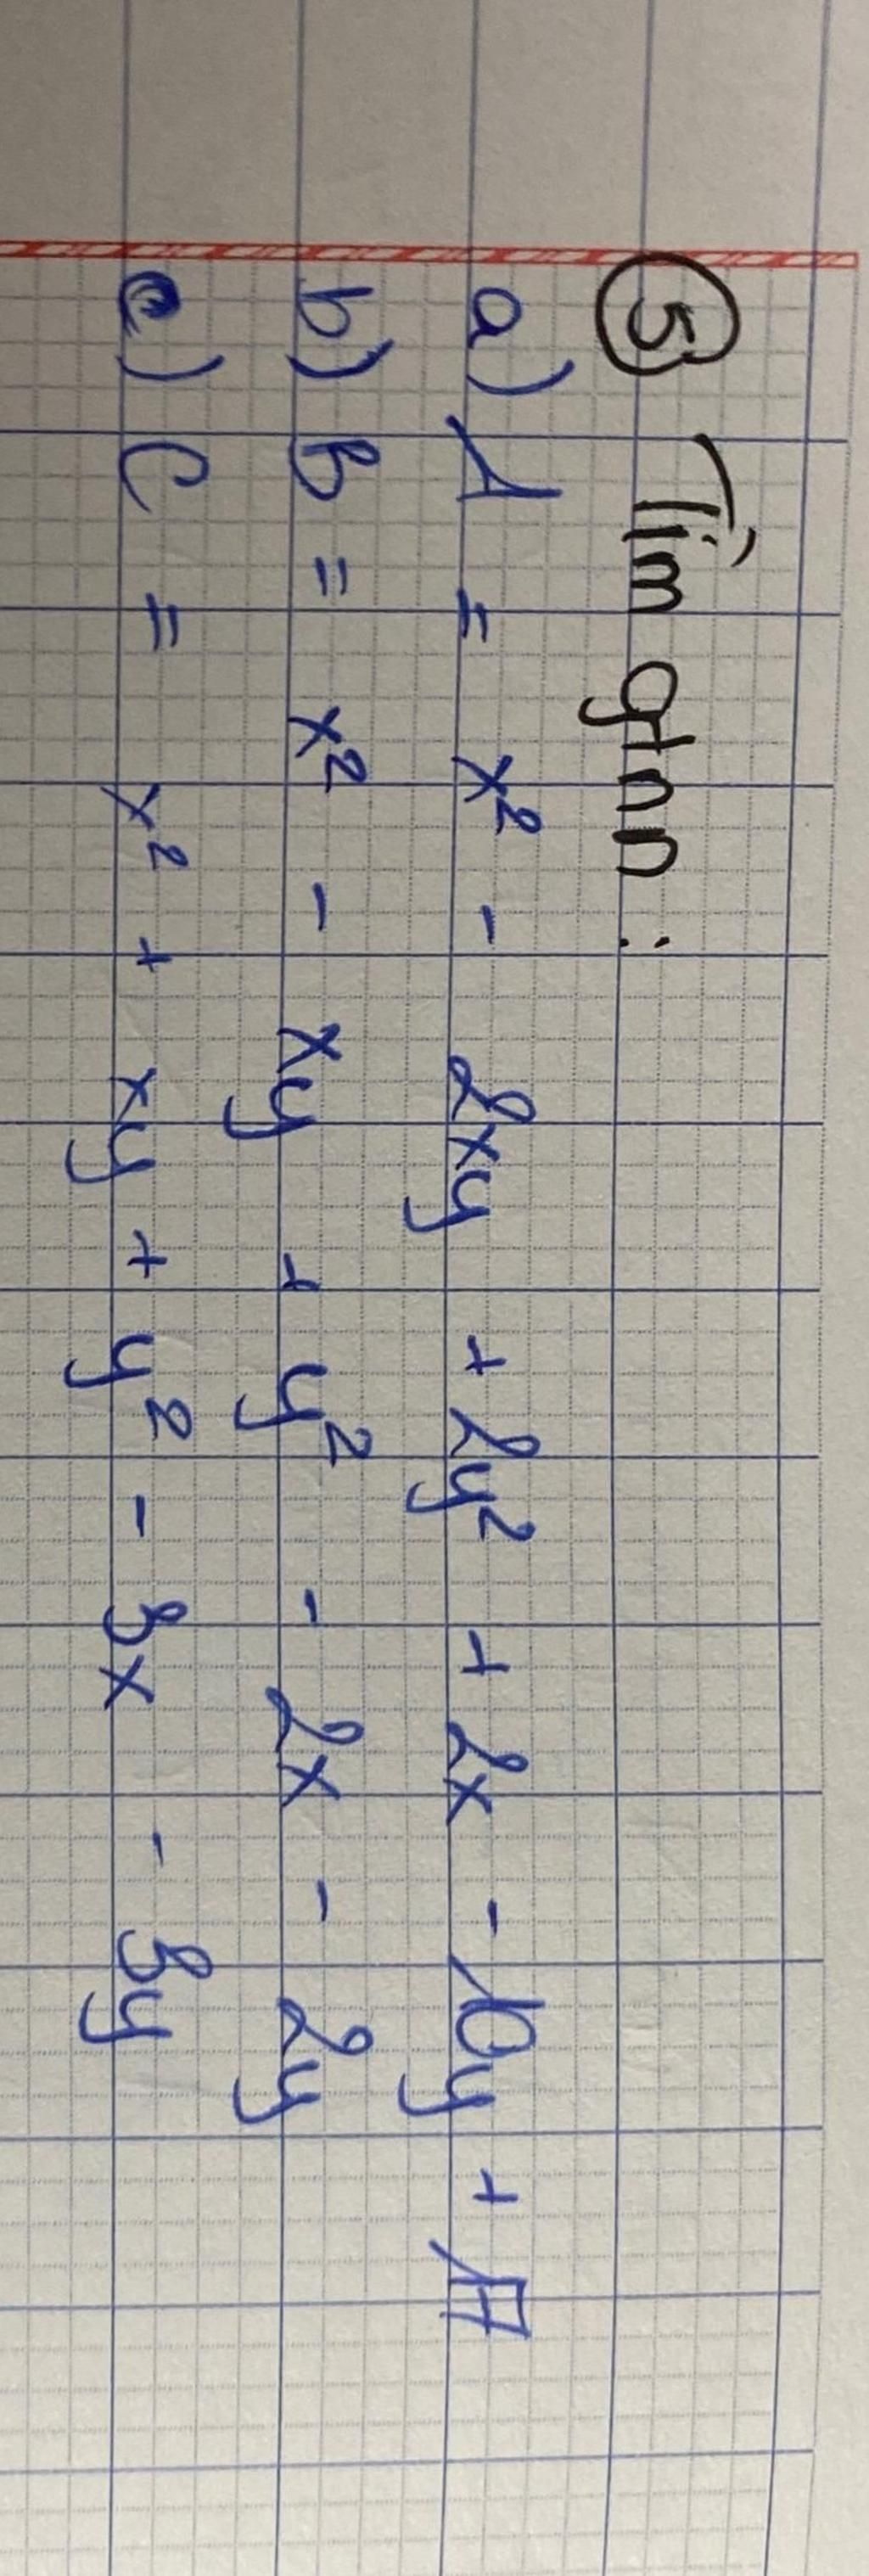 ⑤ Tìm gtnn :
a) A = x² - 2xy + 2y² + 2x - 10y + 17
b) B = x² - xy + y² - 2x - 2y
c) C = x² + xy + y² - 3x - 3y